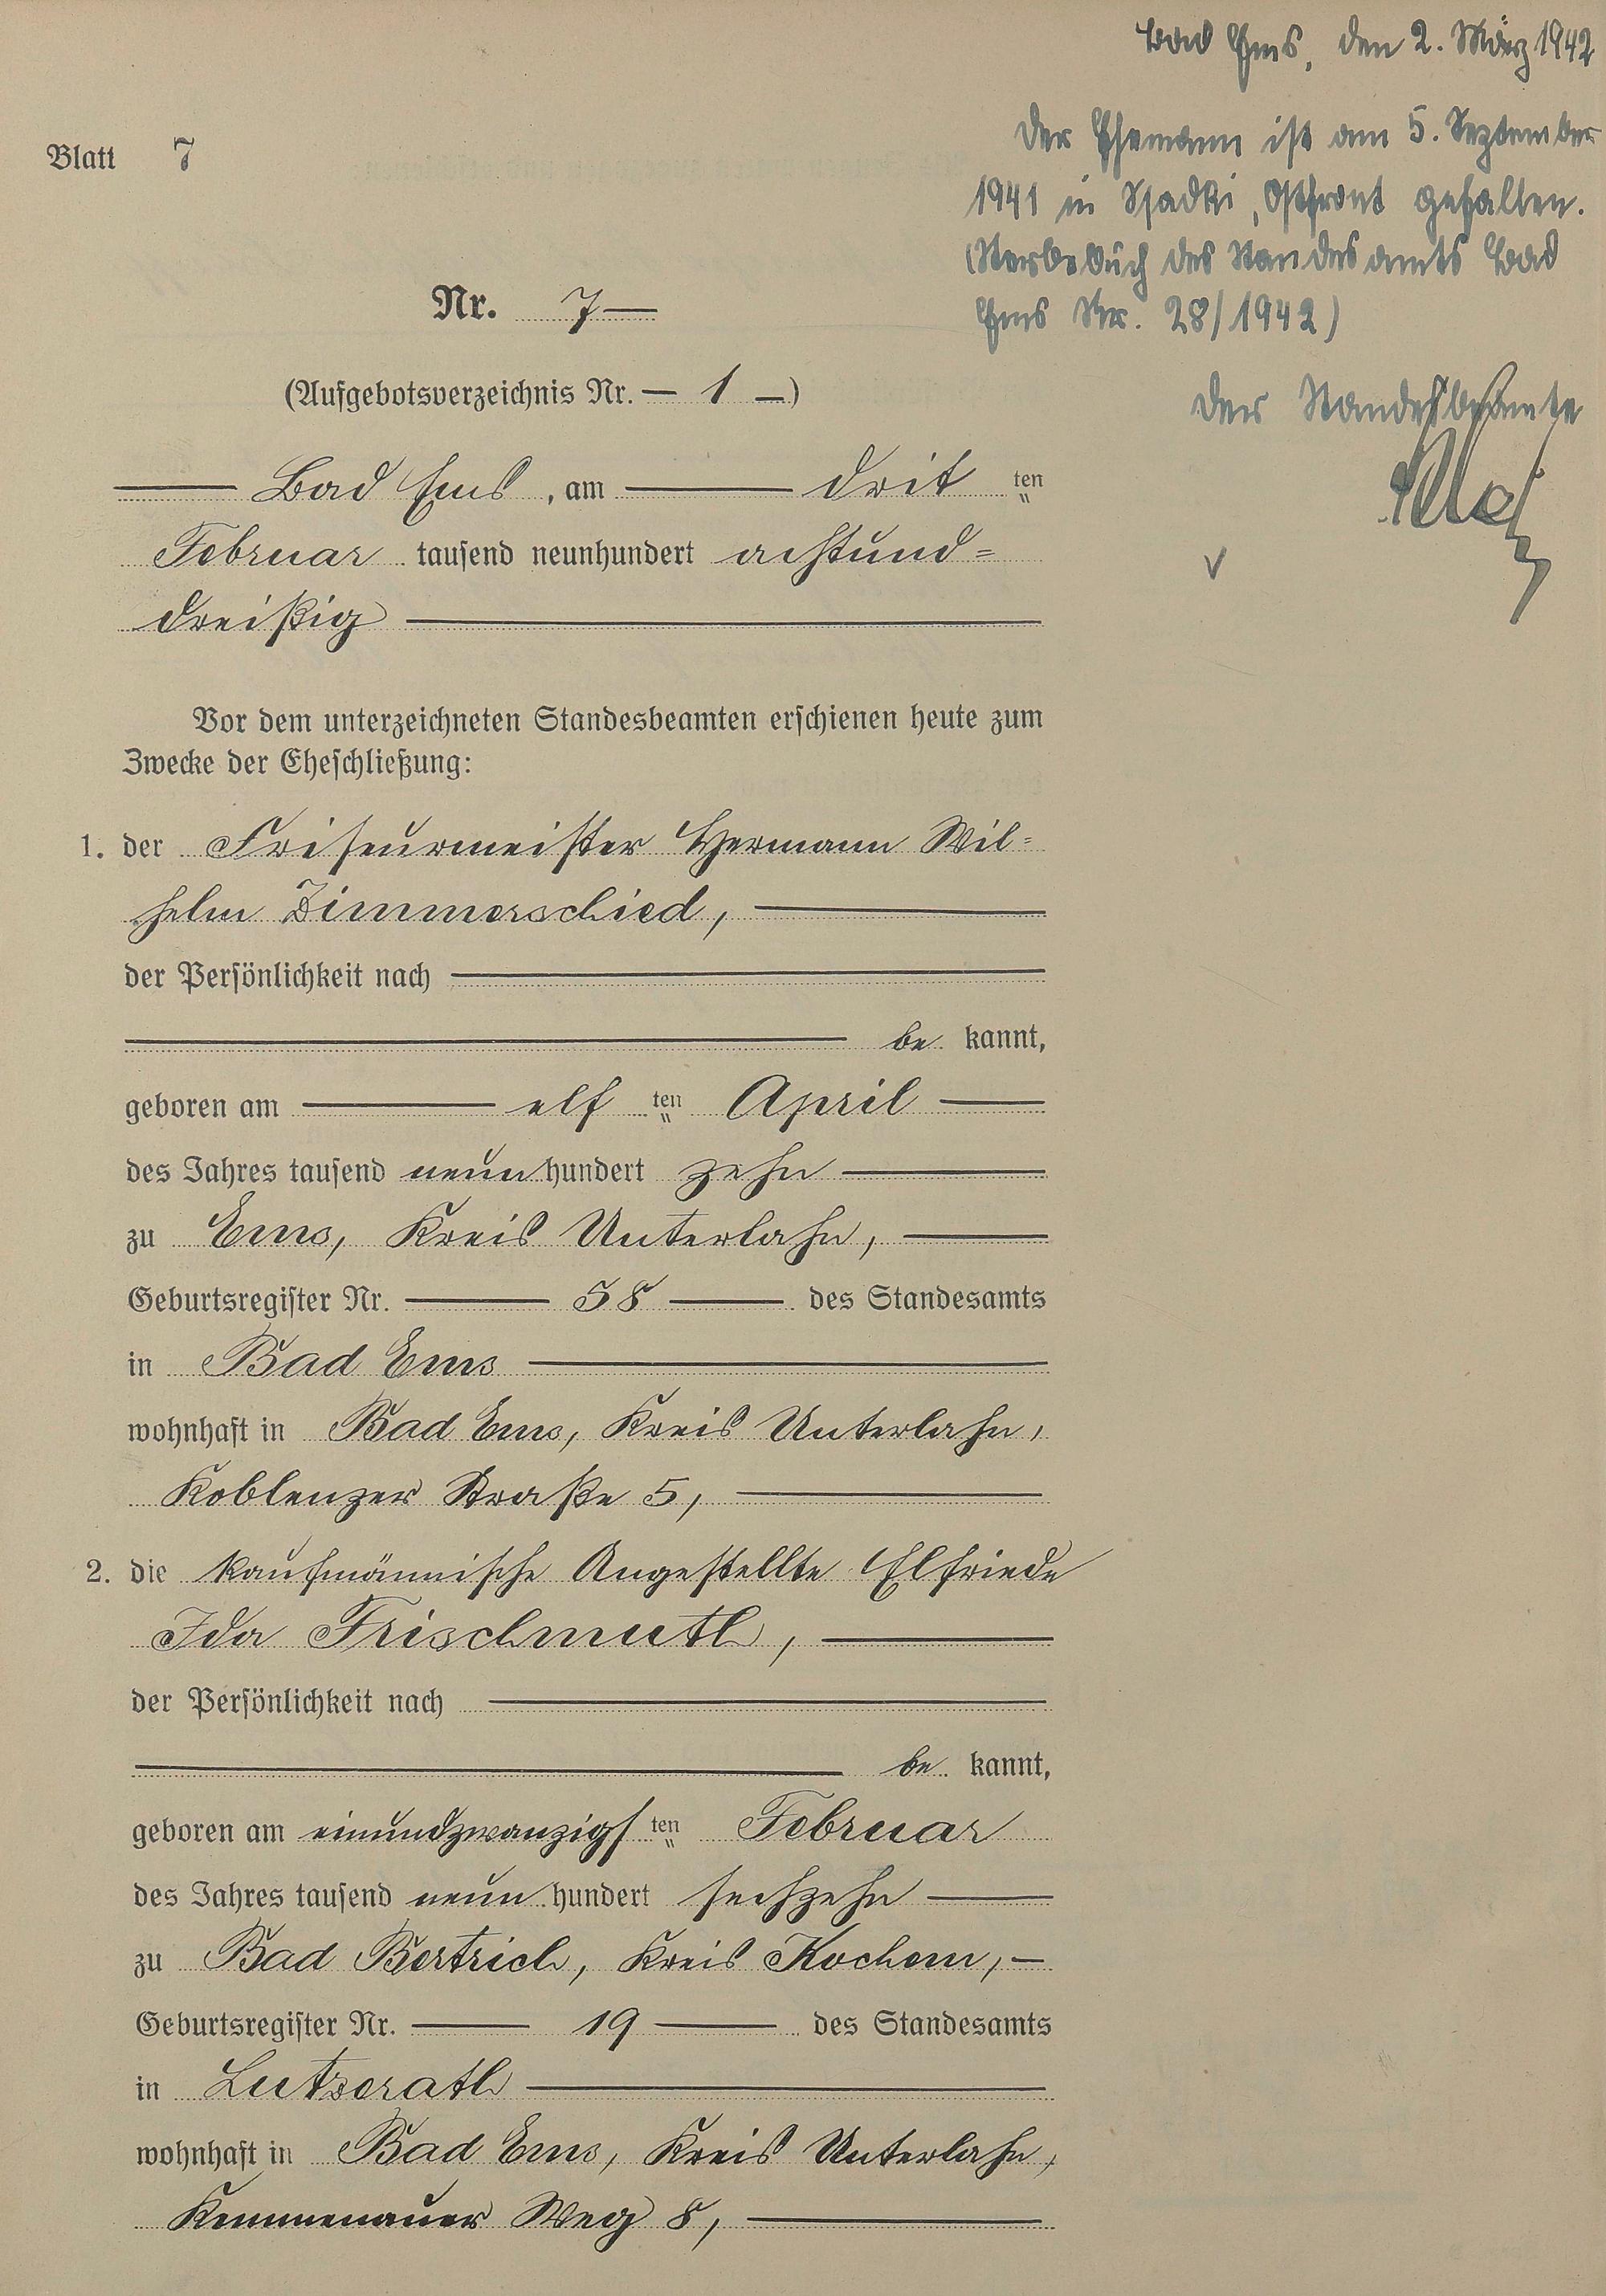 Bad Ems, den 2. März 1942
Der Ehemann ist am 5. September
1941 in Sjadki, Ostfront gefallen.
(Sterbebuch des Standesamts Bad
Ems Nr. 28/1942)
Der Standesbeamte
Blatt 7
Nr. 7
(Aufgebotsverzeichnis Nr. — 1 —)
Bad Ems, am drit ten
Februar tausend neunhundert achtund=
dreißig
Vor dem unterzeichneten Standesbeamten erschienen heute zum
Zwecke der Eheschließung:
1. der Friseurmeister Hermann Wil=
helm Zimmerschied,
der Persönlichkeit nach
be kannt,
geboren am elf ten April
des Jahres tausend neun hundert zehn
zu Ems, Kreis Unterlahn,
Geburtsregister Nr. 58 des Standesamts
in Bad Ems
wohnhaft in Bad Ems, Kreis Unterlahn,
Koblenzer Straße 5,
2. die kaufmännische Angestellte Elfriede
Ida Frischmuth,
der Persönlichkeit nach
be kannt,
geboren am einundzwanzigs ten Februar
des Jahres tausend neun hundert sechzehn
zu Bad Bertrich, Kreis Kochem,
Geburtsregister Nr. 19 des Standesamts
in Lutzerath
wohnhaft in Bad Ems, Kreis Unterlahn,
Kemmenauer Weg 8,